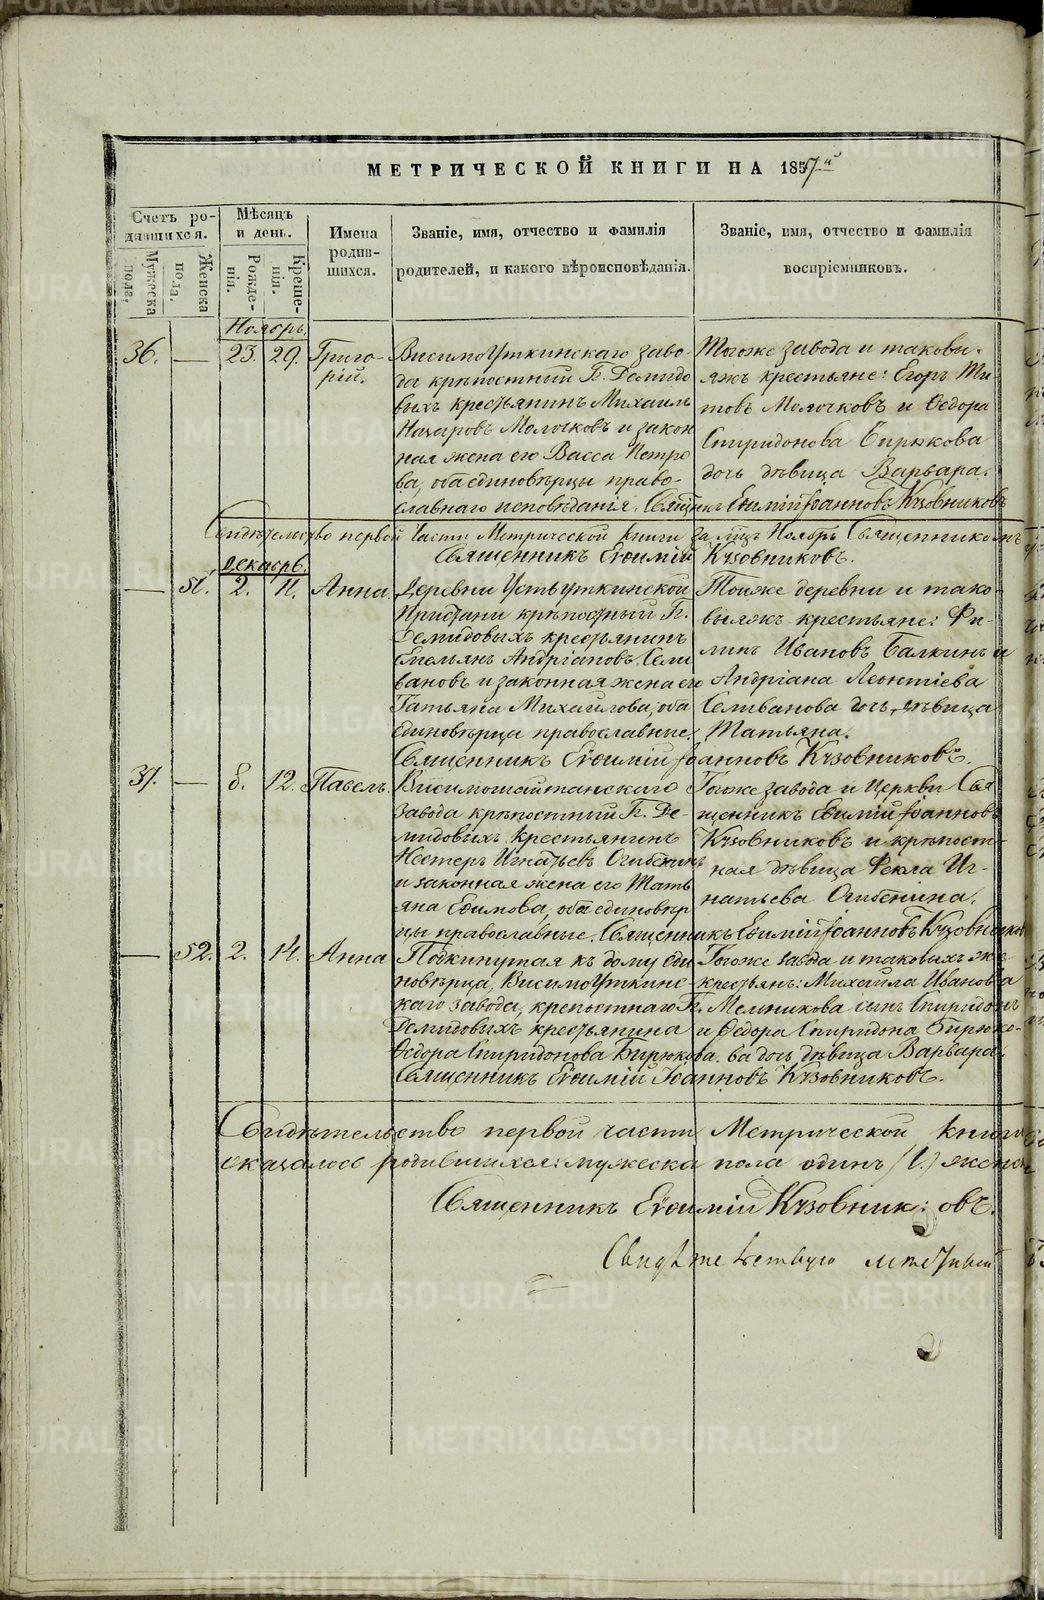 МЕТРИЧЕСКОЙ КНИГИ НА 1857й
Счетъ ро-
дившихся.
Мужеска
пола.
Женска
пола.
Мѣсяцъ
и день.
Рожде-
нія.
Креще-
нія.
Имена
родив-
шихся.
Званіе, имя, отчество и фамилія
родителей, и какого вѣроисповѣданія.
Званіе, имя, отчество и фамилія
воспріемниковъ.
Ноябрь.
36. — 23. 29.
Григо-
рій.
Висимоуткинскаго заво-
да крѣпостный Г. Демидо
выхъ крестьянинъ Михаилъ
Назаровъ Молочковъ и закон
ная жена его Васса Петро
ва, оба единовѣрцы право-
славнаго исповѣданія. Священникъ Евѳимій Іоанновъ Кузовниковъ
Тогоже завода и таковы-
яжъ крестьяне: Егоръ Ти-
товъ Молочковъ и Ѳедора
Спиридонова Бирюкова
дочь дѣвица Варвара.
Свидѣтельство первой части Метрической книги за мѣцъ Ноябрь Священникомъ
Священникъ Евѳимій Кузовниковъ.
Декабрь.
— 51. 2. 11. Анна.
Деревни Устьуткинской
Пристани крѣпостный Г.
Демидовыхъ крестьянинъ
Емельянъ Андріановъ Сели
вановъ и законная жена его
Татьяна Михайлова, оба
единовѣрца православные.
Тоиже деревни и тако-
выяжъ крестьяне: Фи-
липъ Ивановъ Балкинъ и
Андріана Леонтіева
Селиванова дочь, дѣвица
Татьяна.
Священникъ Евѳимій Іоанновъ Кузовниковъ.
37. — 6. 12. Павелъ.
Висимошайтанскаго
завода крѣпостный Г. Де-
мидовихъ крестьянинъ
Нестеръ Игнатьевъ Огибенинъ
и законная жена его Тать
яна Еѳимова, оба единовѣр
цы православные. Священникъ Евѳимій Іоанновъ Кузовниковъ
Тогоже завода и Церкви Свя
щенникъ Евѳимій Іоанновъ
Кузовниковъ и крѣпост-
ная дѣвица Ѳекла Иг-
натьева Огибенина.
— 52. 2. 14. Анна
Подкинутая къ дому еди
новѣрца, Висимоуткинс-
каго завода, крепостнаго Г.
Демидовихъ крестьянина
Ѳедора Спиридонова Бирюкова.
Тогоже завода и таковыхъ же
крестьянъ: Михаила Иванова
Мельникова сынъ Спиридонъ
и Ѳедора Спиридона Бирюко-
ва дочь дѣвица Варвара.
Священникъ Евѳимій Іоанновъ Кузовниковъ.
Свидѣтельство первой части Метрической книги
оказалось родившихся: мужеска пола одинъ (1.) женск
Священникъ Евѳимій Кузовник: овъ.
Свидѣтельствую